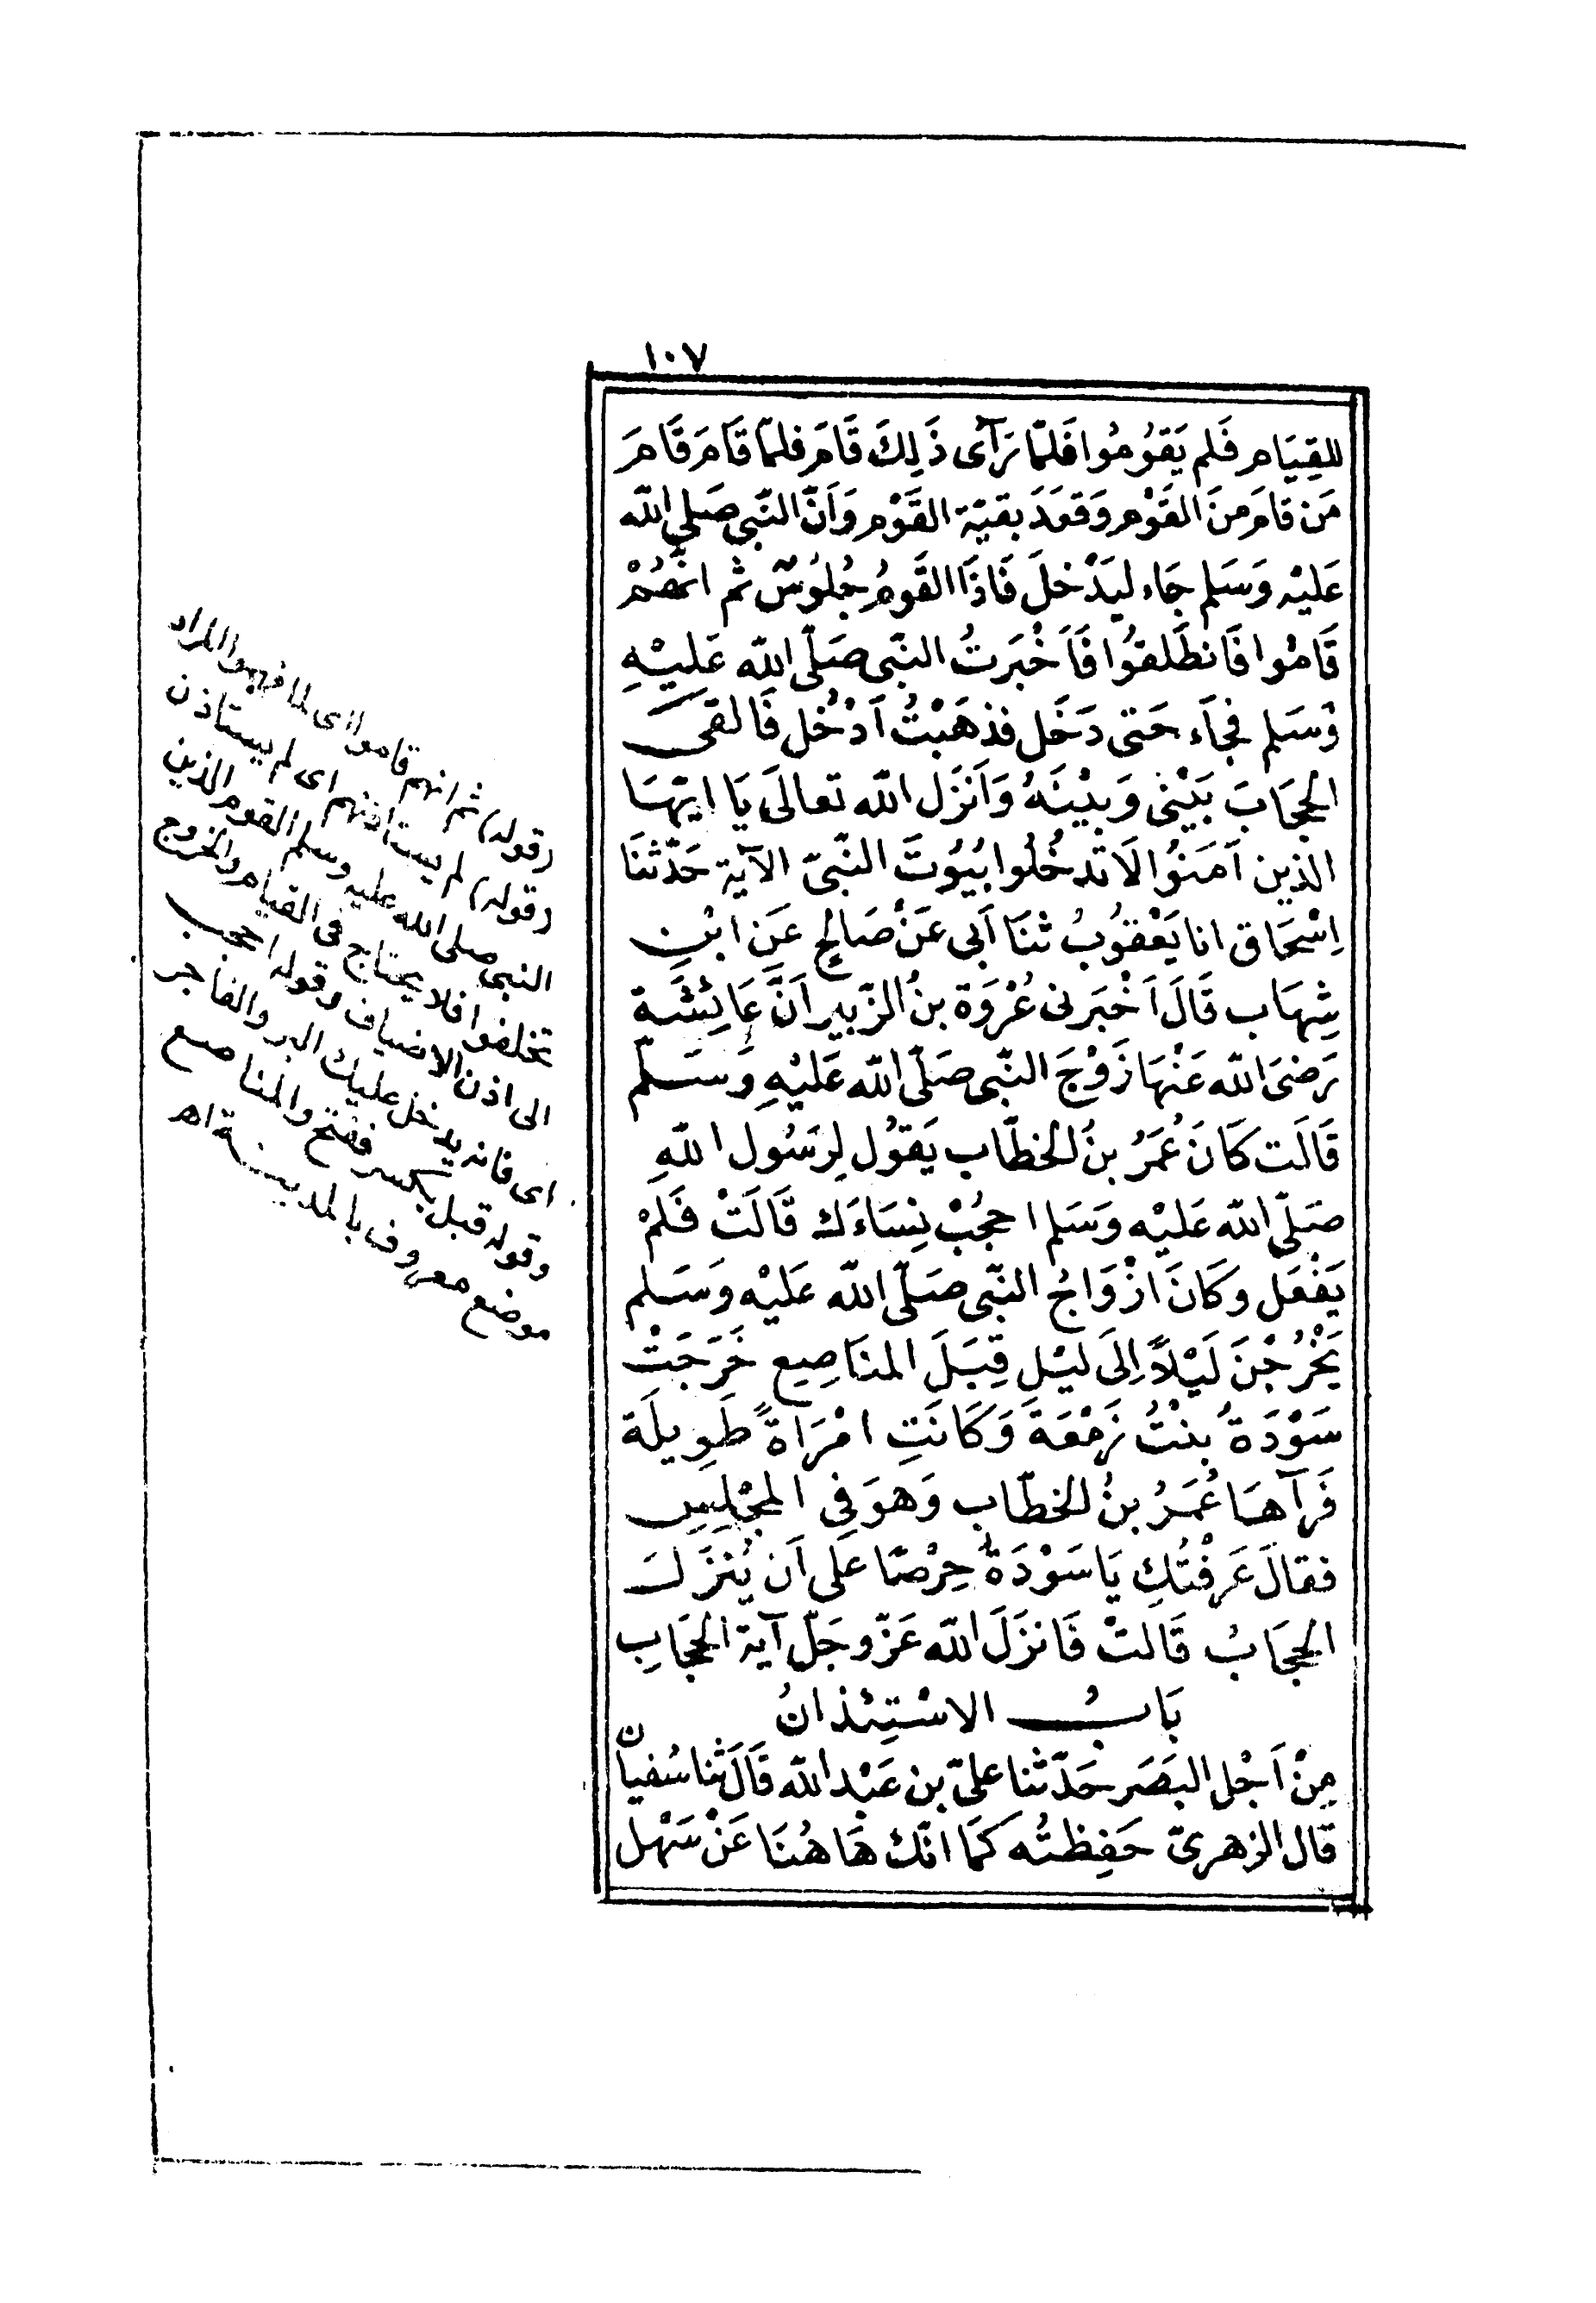 ١٠٧
للقِيَام فَلم يَقوُمُوا فَلمّا رَآى ذَلِكَ قَامَ فلمّا قَامَ قَامَ
مَن قامَ مِنَ القَوْم وَقعَدَ بقيّة القَوْم وَاَنَّ النّبى صَلى الله
عَليْه وَسَلم جَاء ليَدْخلَ فَاذَا القَومُ جُلوُسٌ ثم انّهُمْ
قَامُوا فَانطَلقوُا فَاَخْبَرتُ النبّى صَلّى الله عَليْهِ
وَسَلم فجَاَء حَتى دَخَل فذهَبْتُ اَدْخُل فَالقى
الحِجَابَ بَيْنى وَبيْنَهُ وَاَنزَل الله تعالَى يَا ايّهَا
الذين آمَنُوا لَا تَدخُلُوا بُيُوتَ النّبىّ الآية حَدّثنَا
اِسْحَاق انا يَعْقوُبُ ثنَا اَبى عَنْ صَالِح عَن ابْنِ
شِهَاب قَالَ اَخْبَرنى عُرْوَة بنُ الزّبير اَنَّ عَائِشَة
رَضىَ الله عَنْهَا زَوْجَ النبّى صَلّى الله عَليْهِ وَسَلّم
قَالَت كَانَ عُمَرُ بنُ الخطّاب يَقوُل لِرسُول اللهِ
صَلّى الله عَليْه وَسَلم احجُبْ نِسَاءَك قَالَتْ فَلمْ
يَفْعَل وكَانَ ازْوَاجُ النبّى صَلّى الله عَليْه وَسَلم
يَخْرُجْنَ لَيْلاً اِلَى ليْلٍ قِبَلَ المنَاصِع خَرَجَتْ
سَوْدَةُ بنْتُ زَمْعَةَ وَكَانَتِ امْرَاةً طَوِيلَة
فَرآهَا عُمَرُ بنُ الخطّاب وَهوَ فِى المجْلِسِ
فقالَ عَرفْتُكِ يَا سَوْدَةُ حِرْصًا عَلى اَن يُنزَلَ
الحِجَابُ قَالتْ فَانزَلَ الله عَزّ وجَلّ آية الحِجَابِ
بَابُ الاسْتِئذانُ
مِنْ اَجْل البَصَر حَدّثنا علىّ بن عَبْد الله قَالَ ثنا سُفيانُ
قَال الزهرىّ حَفِظتُه كَمَا انّك هَاهُنَا عَنْ سَهْل
(قوله) ثم انهم قاموا اى لما فهموا المراد
(قوله) لم يستاذنهم اى لم يستاذن
النبى صلى الله عليه وسلم القوم الذين
تخلفوا فلا يحتاج فى القيام والخروج
الى اذن الاضياف وقوله احجب
اى فانه يدخل عليك البر والفاجر
وقوله قبل بكسر ففتح والمناصع
موضع معروف بالمدينة اهـ